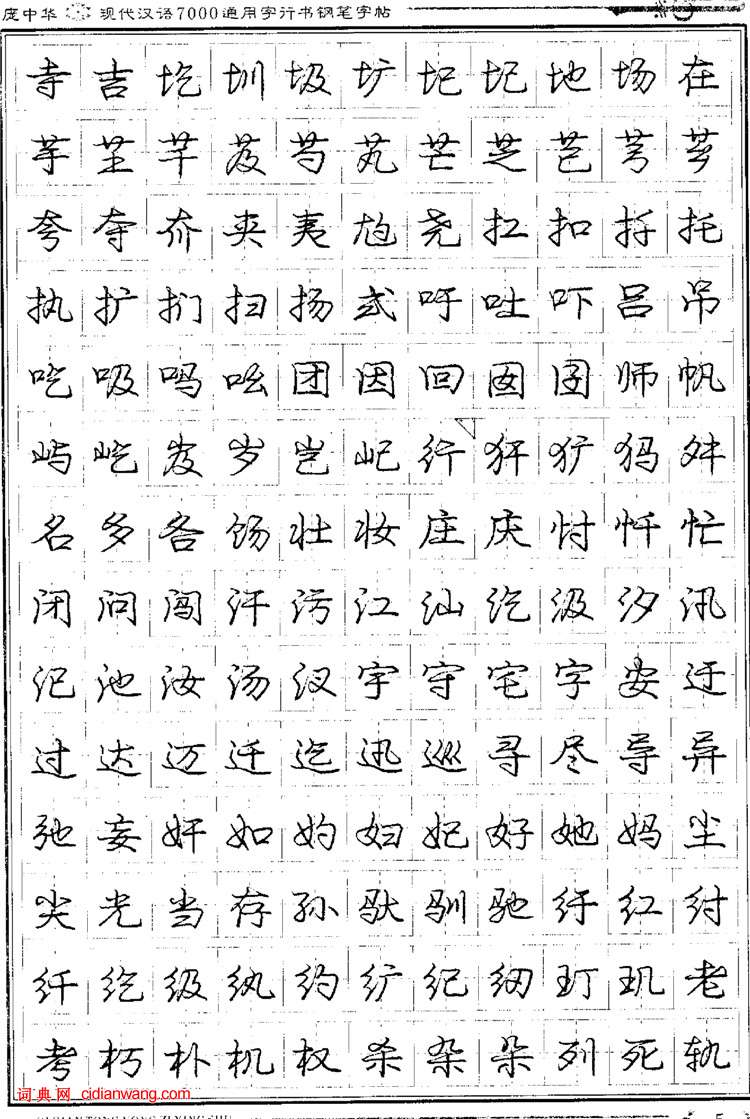 庞中华 现代汉语7000通用字行书钢笔字帖
寺 吉 圪 圳 圾 圹 圮 圯 地 场 在
芋 芏 芊 芨 芍 芄 芒 芝 芑 芎 芗
夸 夺 夼 夹 夷 尥 尧 扛 扣 扦 托
执 扩 扪 扫 扬 式 吁 吐 吓 吕 吊
吃 吸 吗 吆 团 因 回 囡 囝 师 帆
屿 屹 岌 岁 岂 屺 行 犴 犷 犸 舛
名 多 各 饧 壮 妆 庄 庆 忖 忏 忙
闭 问 闯 汗 污 江 汕 汔 汲 汐 汛
汜 池 汝 汤 汊 宇 守 宅 字 安 迂
过 达 迈 迁 迄 迅 巡 寻 尽 导 异
弛 妄 奸 如 妁 妇 妃 好 她 妈 尘
尖 光 当 存 孙 驮 驯 驰 纡 红 纣
纤 纥 级 纨 约 纩 纪 纫 玎 玑 老
考 朽 朴 机 权 杀 杂 朵 列 死 轨
词典网_cidianwang.com/